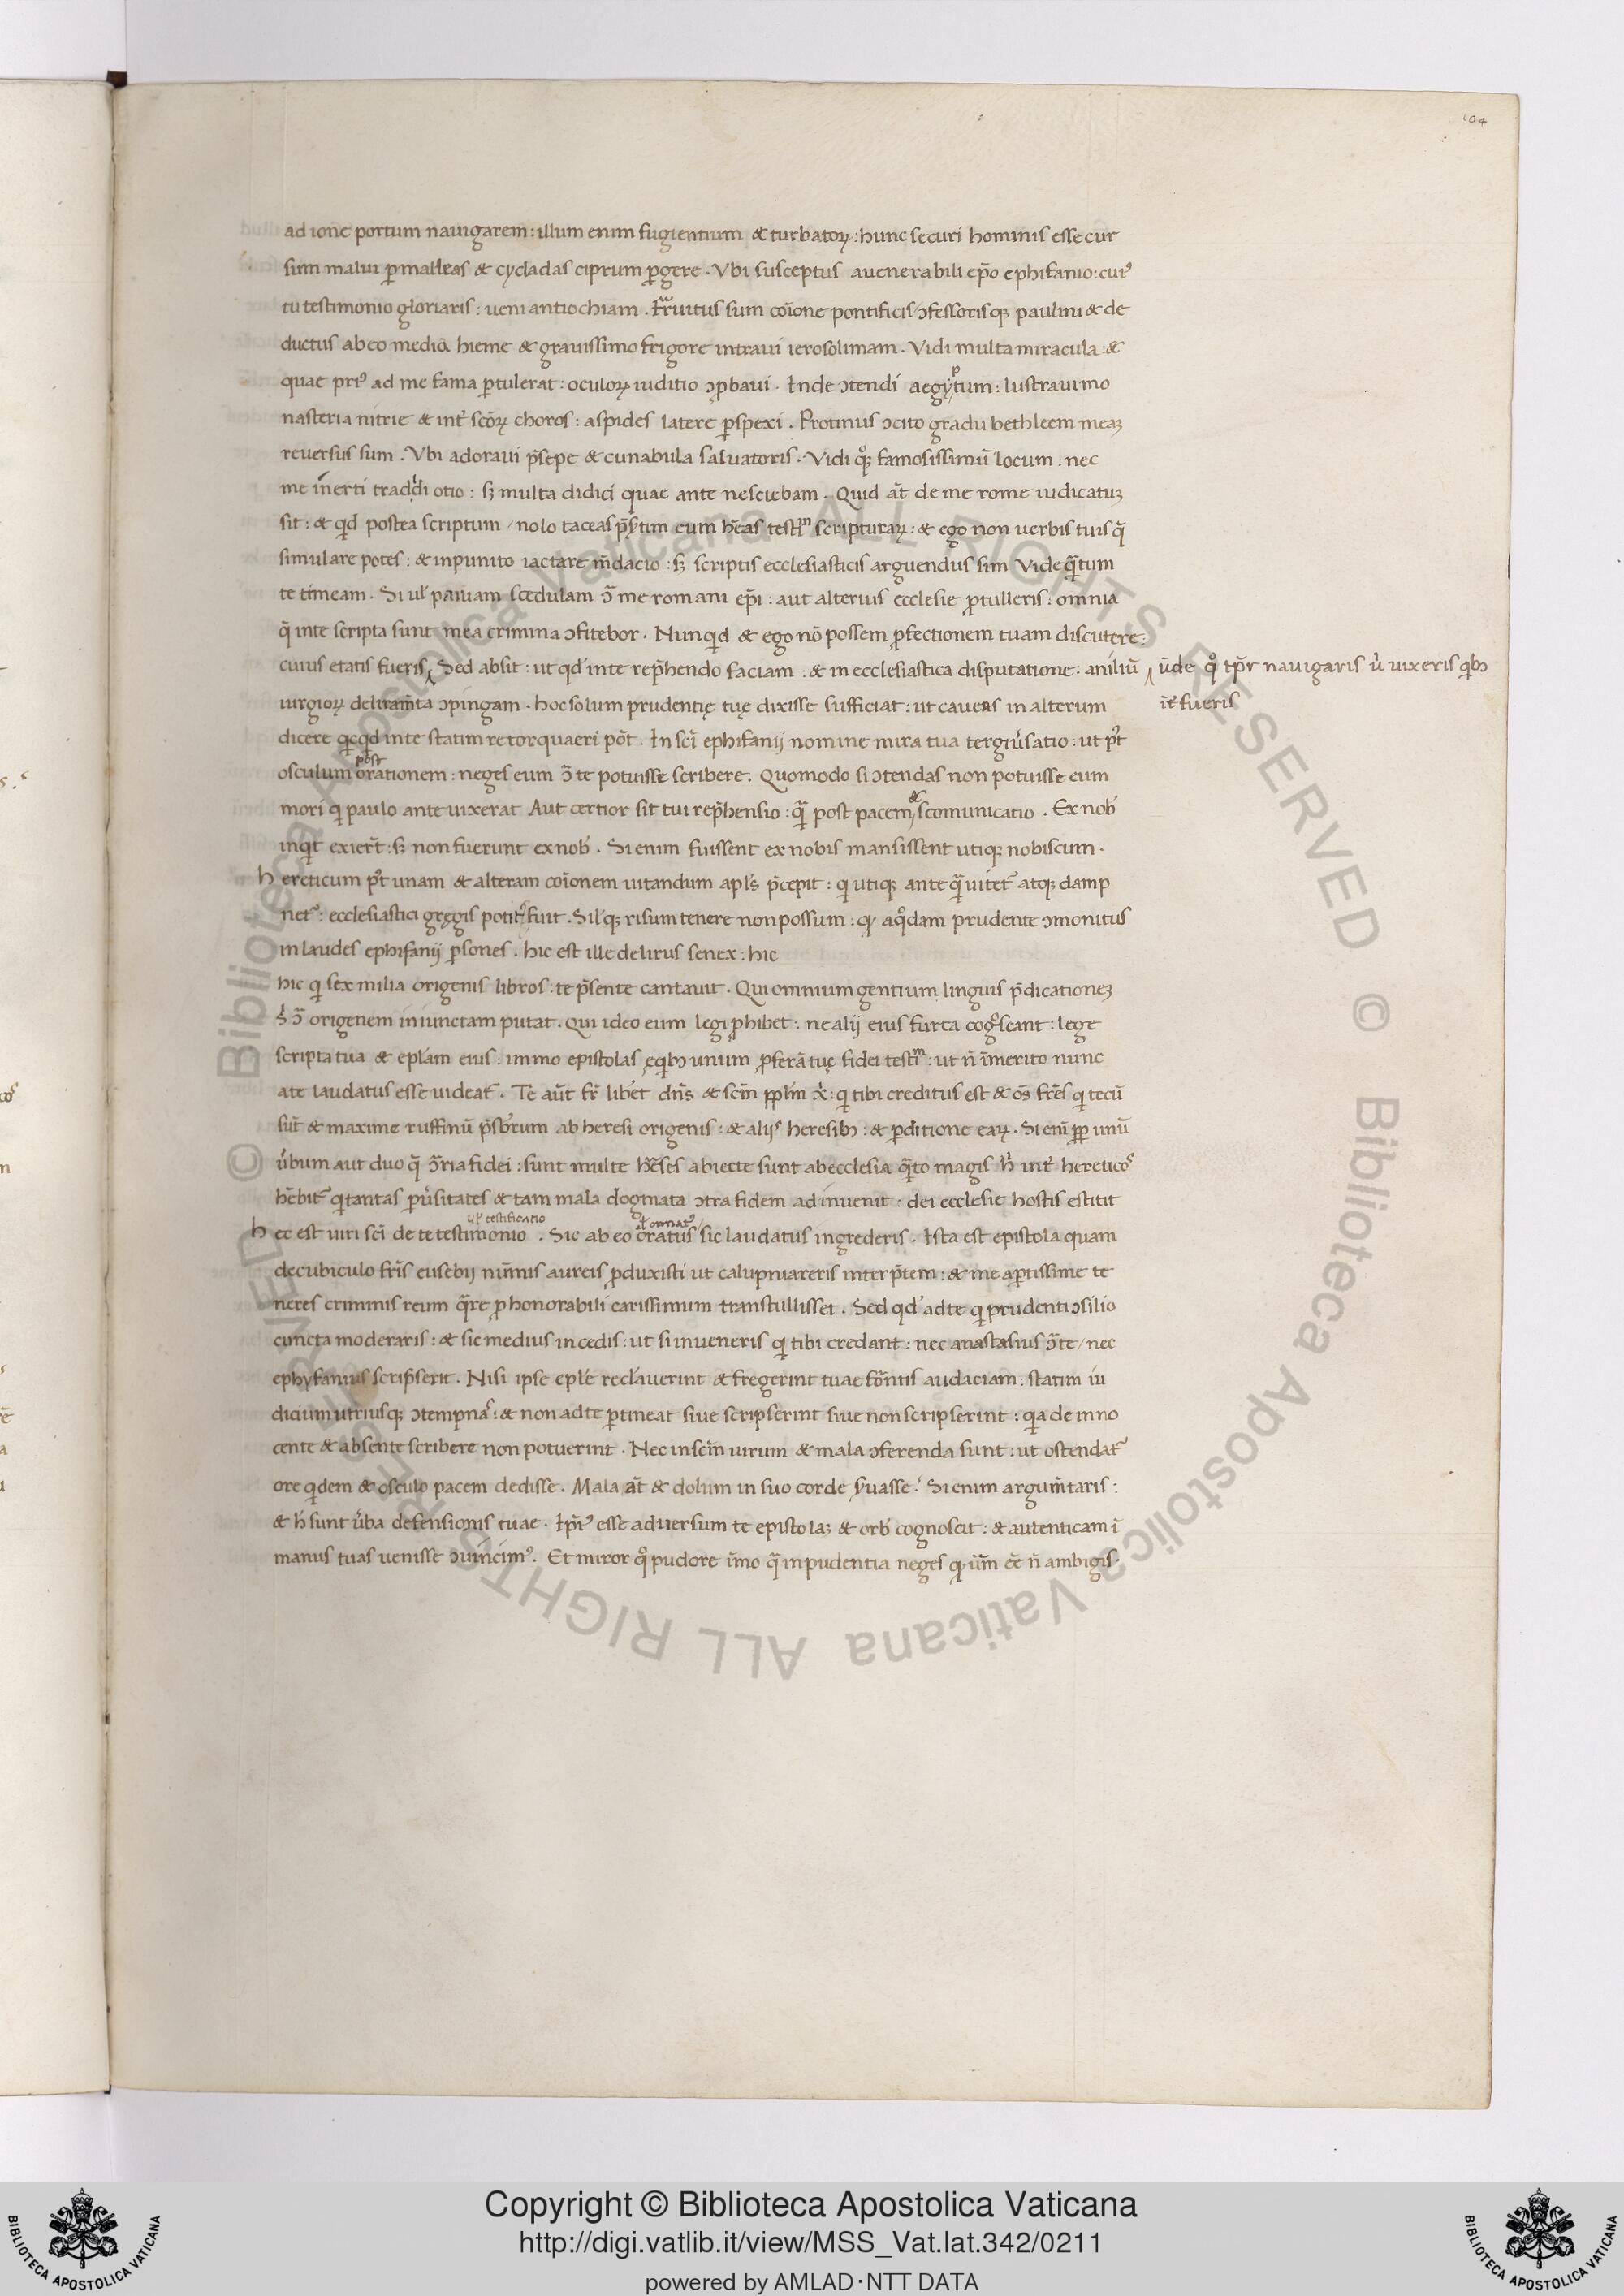 104
ad ionẽ portum nauigarem : illum enim fugientium & turbatoꝝ : hunc securi hominis esse cur
sum malui ꝑ malleas & cycladas ciprum ꝑgere . Vbi susceptus auenerabili ep̃o ephifanio : cuiꝰ
tu testimonio gloriaris : ueni antiochiam . fruitus sum coĩone pontificis ↄfessorisqꝫ paulini & de
ductus ab eo media hieme & grauissimo frigore intraui ierosolimam . Vidi multa miracula : &
quae priꝰ ad me fama ꝑtulerat : oculoꝝ iuditio ↄꝓbaui . Inde ↄtendi aegyptum : lustraui mo
nasteria nitrie & int̃ sc̃oꝝ choros : aspides latere ꝑspexi . Protinus ↄcito gradu bethleem meaꝫ
reuersus sum . Vbi adoraui p̃sepe & cunabula saluatoris . Vidi qͦꝫ famosissimũ locum : nec
me inerti tradidi otio : sꝫ multa didici quae ante nesciebam . Quid at̃ de me rome iudicatuꝫ
sit : & qd postea scriptum / nolo taceas p̃sertim cum h̃eas testim̃ scripturaꝝ : & ego non uerbis tuis q̃
simulare potes : & inpunito iactare m̃dacio : sꝫ scriptis ecclesiasticis arguendus sim Vide q̃tum
te timeam . Si ul̓ paruam scedulam ↄ̃ me romani ep̃i : aut alterius ecclesie ꝓtulleris : omnia
q̃ inte scripta sunt mea crimina ↄfitebor . Nunqid & ego nõ possem ꝓfectionem tuam discutere :
cuius etatis fueris Sed absit : ut qd̓ inte rep̃hendo faciam : & in ecclesiastica disputatione : aniliũ
ũde qͦ tp̃r nauigaris u̓ uixeris qͥbꝫ
it̃ fueris
iurgioꝝ deliram̃ta ↄpingam . hoc solum prudentię tuę dixisse sufficiat : ut caueas in alterum
dicere qͥcqͥd inte statim retorquaeri põt . In sc̃i ephifanij nomine mira tua tergiu̓satio : ut p̃t
osculum post orationem : neges eum ↄ̃ te potuisse scribere . Quomodo si ↄtendas non potuisse eum
mori qͥ paulo ante uixerat Aut certior sit tui rep̃hensio : q̃ post pacem & scomunicatio . Ex nob̓
inqͥt exier̃t : sꝫ non fuerunt ex nob̓ . Si enim fuissent ex nobis mansissent utiqꝫ nobiscum .
hereticum p̃t unam & alteram coĩonem uitandum apl̓s p̃cepit : qͥ utiqꝫ ante q̃ uitet̃ atqꝫ damp
net̃ : ecclesiastici gregis potitꝰ fuit . Sil̓qꝫ risum tenere non possum : qꝫ a qͦdam prudente ↄmonitus
in laudes ephifanij ꝑsones . hic est ille delirus senex : hic
hic qͥ sex milia origenis libros : te p̃sente cantauit . Qui omnium gentium linguis p̃dicationeꝫ
s̓ ↄ̃ origenem iniunctam putat . Qui ideo eum legi ꝓhibet : ne alij eius furta cogͦscant : lege
scripta tua & epl̃am eius : immo epistolas eqͥbꝫ unum ꝓferã tuę fidei testim̃ : ut ñ ĩmerito nunc
ate laudatus esse uideat̃ . Te aut̃ fr̃ libet̓ dñs & sc̃m ppl̃m x̓ : qͥ tibi creditus est & om̃s fr̃es qͥ tecũ
sũt & maxime ruffinũ p̃sb̓rum ab heresi origenis : & alijs heresibꝫ : & ꝑditione eaꝝ . Si enĩ ꝓp unũ
u̓bum aut duo q̃ ↄ̃ria fidei : sunt multe h̃eses abiecte sunt abecclesia q̃to magis h̓ int̓ hereticoꝰ
h̃ebit̃ qͥ tantas ꝑu̓sitates & tam mala dogmata ↄtra fidem adinuenit . dei ecclesie hostis estitit
ul̓ testificatio
ul̓ ornatꝰ
hec est uiri sc̃i de te testimonio . Sic ab eo oratus / sic laudatus ingrederis . Ista est epistola quam
de cubiculo fr̃is eusebij nũmis aureis ꝓduxisti ut calupniareris interp̃tem : & me aꝑtissime te
neres criminis reum q̃re ꝓ honorabili carissimum transtullisset . Sed qd̓ ad te qͥ prudenti ↄsilio
cuncta moderaris : & sic medius incedis : ut si inueneris qͥ tibi credant : nec anastasius ↄ̃ te / nec
ephyfanius scripserit . Nisi ipse epl̓e recl̓auerint & fregerint tuae frõntis audaciam : statim iu
dicium utriusqꝫ ↄtempnas : & non ad te ꝑtineat siue scripserint siue non scripserint : qꝛ de inno
cente & absente scribere non potuerint . Nec in sc̃m uirum & mala ↄferenda sunt : ut ostendat̃
ore qͥdem & osculo pacem dedisse . Mala at̃ & dolum in suo corde s̓uasse . Si enim argum̃taris :
& h̓ sunt u̓ba defensionis tuae . Ip̃iꝰ esse aduersum te epistolaꝫ & orb̓ cognoscit : & autenticam ĩ
manus tuas uenisse ↄuincimꝰ . Et miror qͦ pudore ĩmo q̃ inpudentia neges qꝫ uũm ẽe ñ ambigis .
Copyright © Biblioteca Apostolica Vaticana
http://digi.vatlib.it/view/MSS_Vat.lat.342/0211
powered by AMLAD·NTT DATA
BIBLIOTECA APOSTOLICA VATICANA
BIBLIOTECA APOSTOLICA VATICANA
© Biblioteca Apostolica Vaticana ALL RIGHTS RESERVED
© Biblioteca Apostolica Vaticana ALL RIGHTS RESERVED